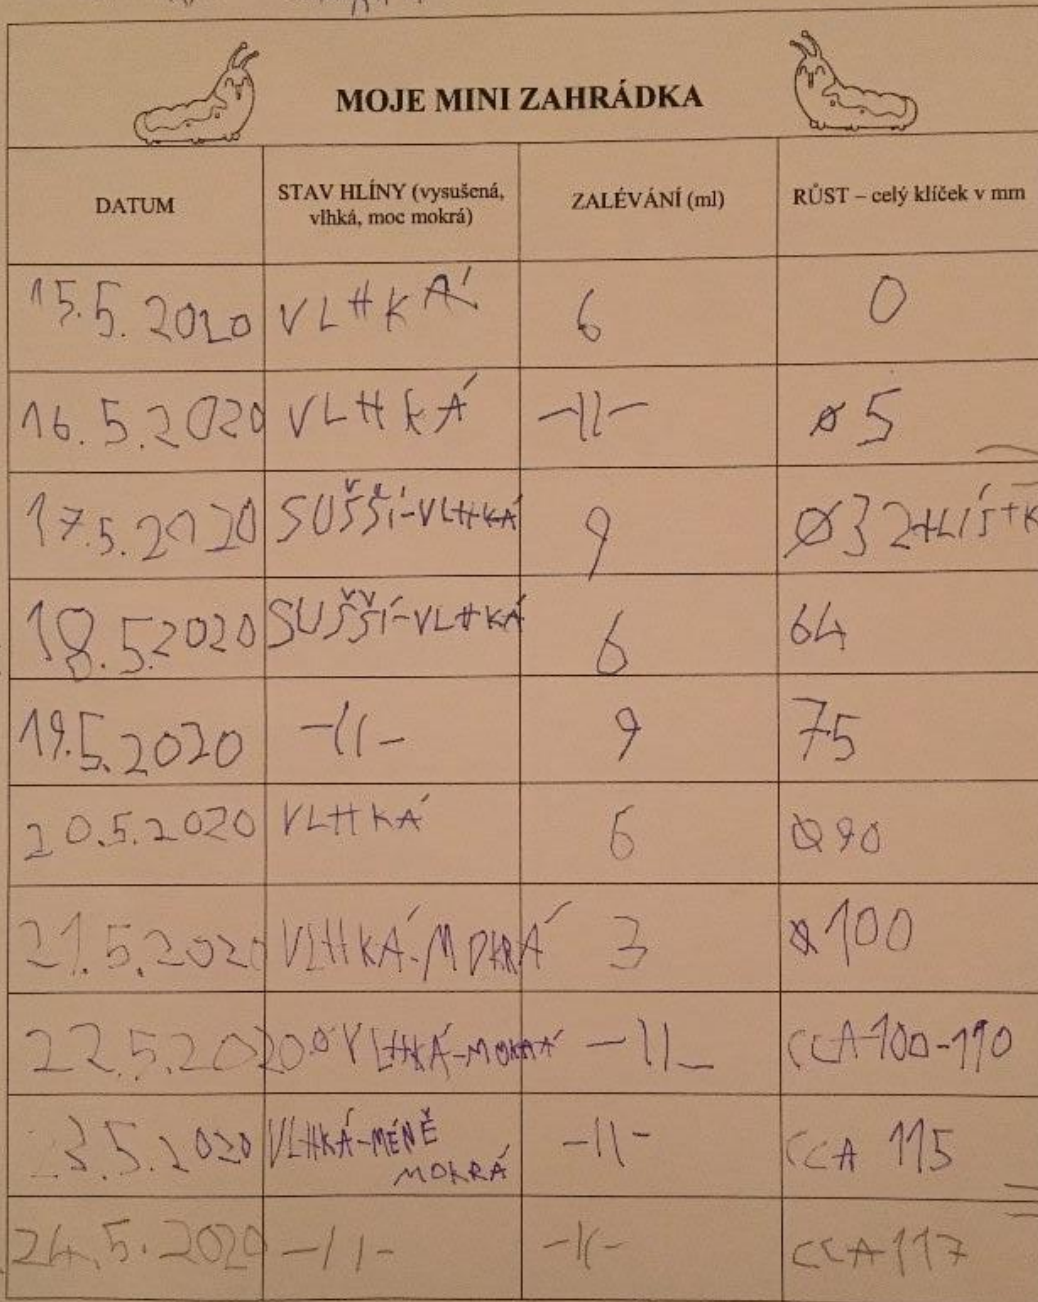 MOJE MINI ZAHRÁDKA
DATUM
STAV HLÍNY (vysušená,
vlhká, moc mokrá)
ZALÉVÁNÍ (ml)
RŮST – celý klíček v mm
15.5. 2020 VLHKÁ 6 0
16.5.2020 VLHKÁ -||- ø 5
17.5.2020 SUŠŠÍ-VLHKÁ 9 Ø32+LÍSTK
18.5.2020 SUŠŠÍ-VLHKÁ 6 64
19.5.2020 -||- 9 75
20.5.2020 VLHKÁ 6 Ø90
21.5.2020 VLHKÁ-MOKRÁ 3 ø100
22.5.2020 VLHKÁ-MOKRÁ -||- CCA 100-110
23.5.2020 VLHKÁ-MÉNĚ
MOKRÁ -||- CCA 115
24.5.2020 -||- -||- CCA 117